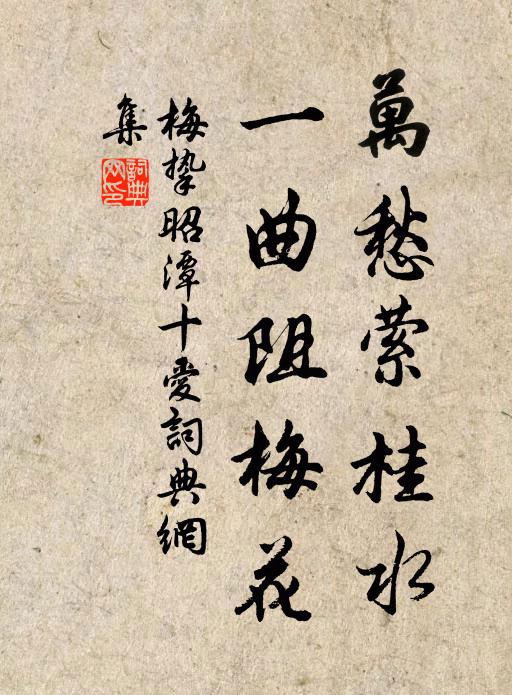 萬愁萦桂水
一曲阻梅花
梅挚昭潭十愛詞典網
集
詞典
网印